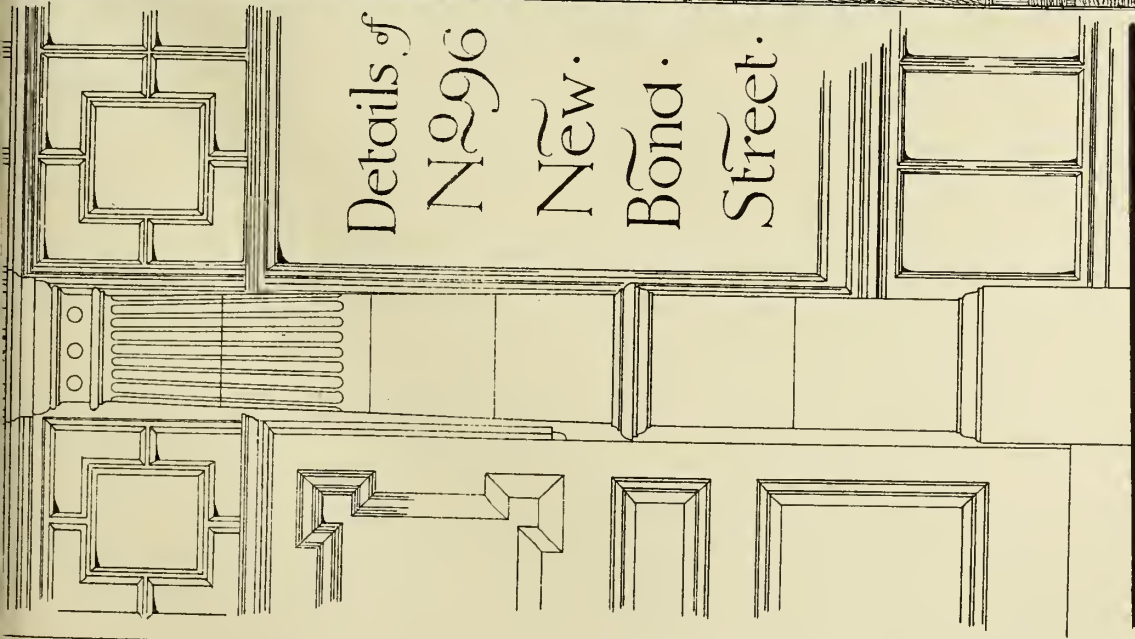 Details of
Nº 96
New ·
Bond ·
Street ·